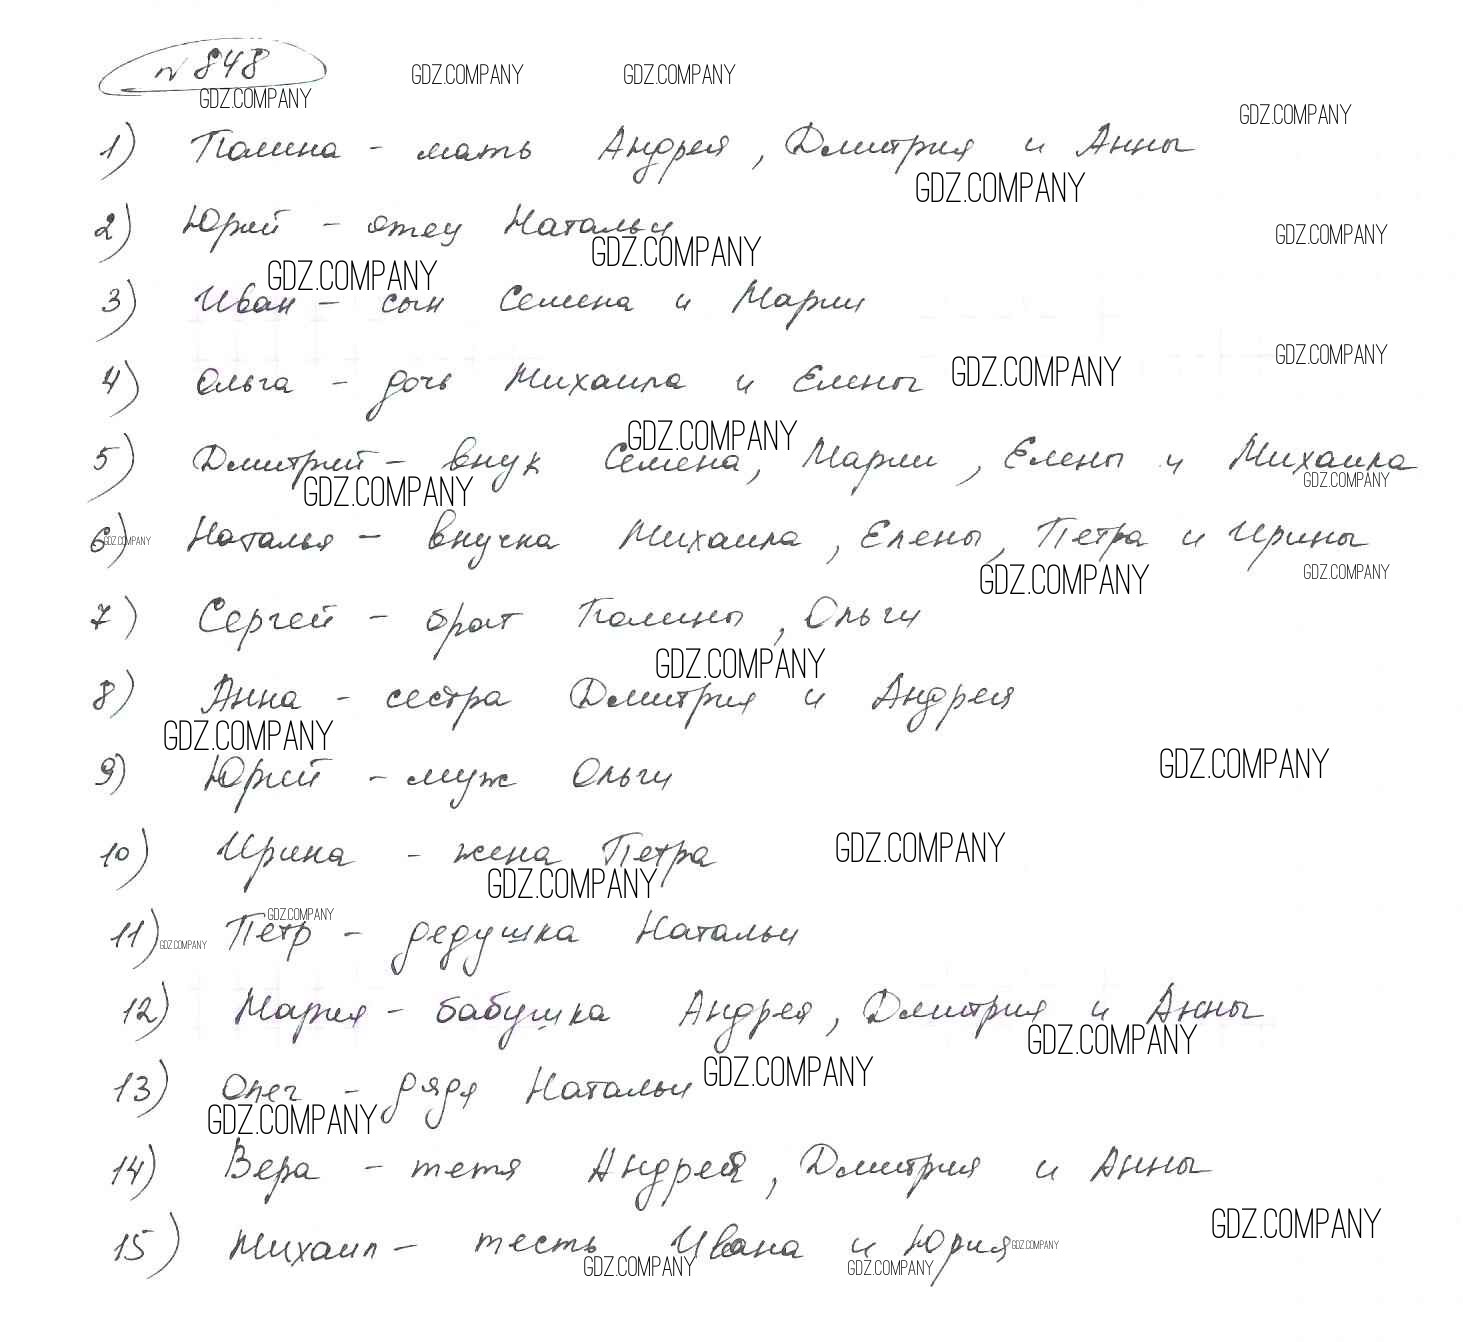 № 848
GDZ.COMPANY GDZ.COMPANY
GDZ.COMPANY
GDZ.COMPANY
1) Полина - мать Андрея, Дмитрия и Анны
GDZ.COMPANY
2) Юрий - отец Натальи
GDZ.COMPANY
GDZ.COMPANY
GDZ.COMPANY
3) Иван - сын Семена и Марии
GDZ.COMPANY
4) Ольга - дочь Михаила и Елены GDZ.COMPANY
GDZ.COMPANY
5) Дмитрий - внук Семена, Марии, Елены и Михаила
GDZ.COMPANY
GDZ.COMPANY
6) Наталья - внучка Михаила, Елены, Петра и Ирины
GDZ.COMPANY
GDZ.COMPANY
GDZ.COMPANY
7) Сергей - брат Полины, Ольги
GDZ.COMPANY
8) Анна - сестра Дмитрия и Андрея
GDZ.COMPANY
GDZ.COMPANY
9) Юрий - муж Ольги
10) Ирина - жена Петра GDZ.COMPANY
GDZ.COMPANY
GDZ.COMPANY
11) Петр - дедушка Натальи
GDZ.COMPANY
12) Мария - бабушка Андрея, Дмитрия и Анны
GDZ.COMPANY
13) Олег - дядя Натальи GDZ.COMPANY
GDZ.COMPANY
14) Вера - тетя Андрея, Дмитрия и Анны
GDZ.COMPANY
15) Михаил - тесть Ивана и Юрия
GDZ.COMPANY
GDZ.COMPANY GDZ.COMPANY